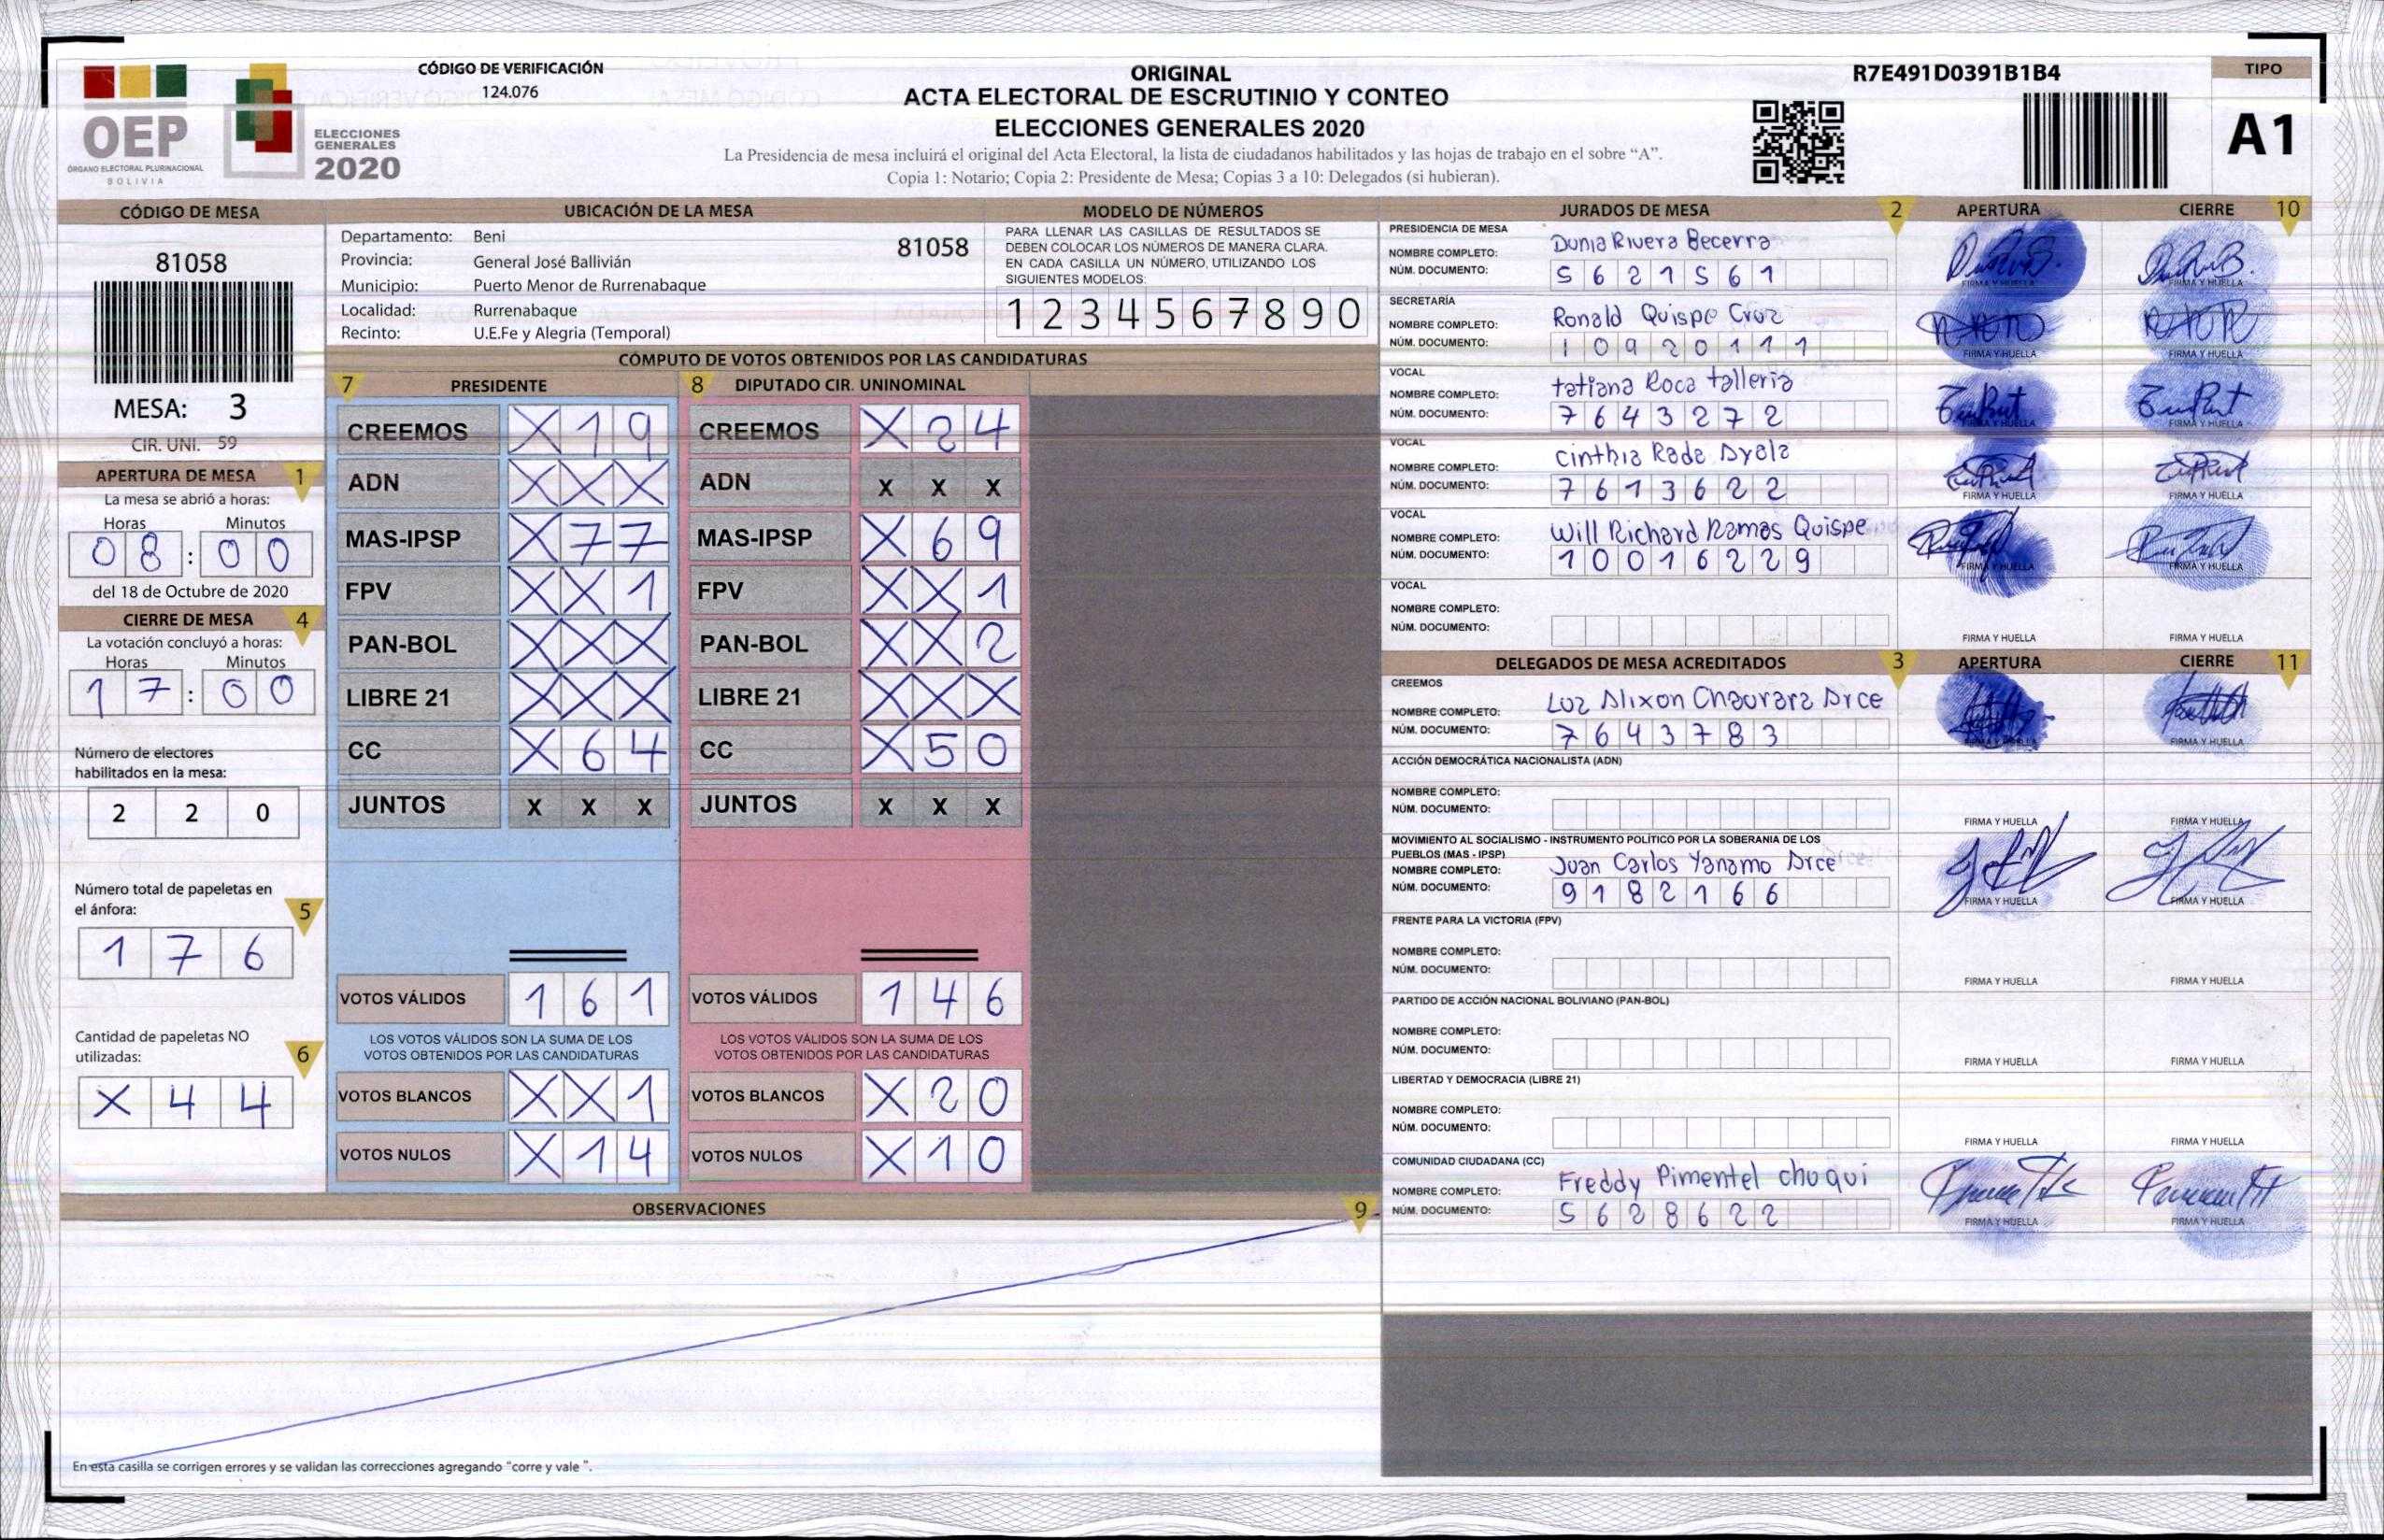 OEP
ÓRGANO ELECTORAL PLURINACIONAL
BOLIVIA
ELECCIONES
GENERALES
2020
CÓDIGO DE VERIFICACIÓN
124.076
ORIGINAL
ACTA ELECTORAL DE ESCRUTINIO Y CONTEO
ELECCIONES GENERALES 2020
La Presidencia de mesa incluirá el original del Acta Electoral, la lista de ciudadanos habilitados y las hojas de trabajo en el sobre “A”.
Copia 1: Notario; Copia 2: Presidente de Mesa; Copias 3 a 10: Delegados (si hubieran).
R7E491D0391B1B4
TIPO
A1
CÓDIGO DE MESA
81058
MESA: 3
CIR. UNI. 59
APERTURA DE MESA 1
La mesa se abrió a horas:
Horas Minutos
08:00
del 18 de Octubre de 2020
CIERRE DE MESA 4
La votación concluyó a horas:
Horas Minutos
17:00
Número de electores
habilitados en la mesa:
2 2 0
Número total de papeletas en
el ánfora: 5
1 7 6
Cantidad de papeletas NO
utilizadas: 6
X 4 4
UBICACIÓN DE LA MESA
Departamento: Beni 81058
Provincia: General José Ballivián
Municipio: Puerto Menor de Rurrenabaque
Localidad: Rurrenabaque
Recinto: U.E.Fe y Alegria (Temporal)
MODELO DE NÚMEROS
PARA LLENAR LAS CASILLAS DE RESULTADOS SE
DEBEN COLOCAR LOS NÚMEROS DE MANERA CLARA.
EN CADA CASILLA UN NÚMERO, UTILIZANDO LOS
SIGUIENTES MODELOS:
1 2 3 4 5 6 7 8 9 0
CÓMPUTO DE VOTOS OBTENIDOS POR LAS CANDIDATURAS
7 PRESIDENTE
CREEMOS X 1 9
ADN X X X
MAS-IPSP X 7 7
FPV X X 1
PAN-BOL X X X
LIBRE 21 X X X
CC X 6 4
JUNTOS X X X
VOTOS VÁLIDOS 1 6 1
LOS VOTOS VÁLIDOS SON LA SUMA DE LOS
VOTOS OBTENIDOS POR LAS CANDIDATURAS
VOTOS BLANCOS X X 1
VOTOS NULOS X 1 4
8 DIPUTADO CIR. UNINOMINAL
CREEMOS X 2 4
ADN X X X
MAS-IPSP X 6 9
FPV X X 1
PAN-BOL X X 2
LIBRE 21 X X X
CC X 5 0
JUNTOS X X X
VOTOS VÁLIDOS 1 4 6
LOS VOTOS VÁLIDOS SON LA SUMA DE LOS
VOTOS OBTENIDOS POR LAS CANDIDATURAS
VOTOS BLANCOS X 2 0
VOTOS NULOS X 1 0
OBSERVACIONES 9
En esta casilla se corrigen errores y se validan las correcciones agregando “corre y vale ”.
JURADOS DE MESA 2 APERTURA CIERRE 10
PRESIDENCIA DE MESA
NOMBRE COMPLETO: Dunia Rivera Becerra
NÚM. DOCUMENTO: 5621561
FIRMA Y HUELLA FIRMA Y HUELLA
SECRETARÍA
NOMBRE COMPLETO: Ronald Quispe Cruz
NÚM. DOCUMENTO: 10920111
FIRMA Y HUELLA FIRMA Y HUELLA
VOCAL
NOMBRE COMPLETO: tatiana Roca talleria
NÚM. DOCUMENTO: 7643272
FIRMA Y HUELLA FIRMA Y HUELLA
VOCAL
NOMBRE COMPLETO: Cinthia Rada Ayala
NÚM. DOCUMENTO: 7613622
FIRMA Y HUELLA FIRMA Y HUELLA
VOCAL
NOMBRE COMPLETO: Will Richard Ramos Quispe
NÚM. DOCUMENTO: 10016229
FIRMA Y HUELLA FIRMA Y HUELLA
VOCAL
NOMBRE COMPLETO:
NÚM. DOCUMENTO:
FIRMA Y HUELLA FIRMA Y HUELLA
DELEGADOS DE MESA ACREDITADOS 3 APERTURA CIERRE 11
CREEMOS
NOMBRE COMPLETO: Luz Alixon Arce
NÚM. DOCUMENTO: 7643783
FIRMA Y HUELLA FIRMA Y HUELLA
ACCIÓN DEMOCRÁTICA NACIONALISTA (ADN)
NOMBRE COMPLETO:
NÚM. DOCUMENTO:
FIRMA Y HUELLA FIRMA Y HUELLA
MOVIMIENTO AL SOCIALISMO - INSTRUMENTO POLÍTICO POR LA SOBERANIA DE LOS
PUEBLOS (MAS - IPSP)
NOMBRE COMPLETO: Juan Carlos Yanamo Arce
NÚM. DOCUMENTO: 9182166
FIRMA Y HUELLA FIRMA Y HUELLA
FRENTE PARA LA VICTORIA (FPV)
NOMBRE COMPLETO:
NÚM. DOCUMENTO:
FIRMA Y HUELLA FIRMA Y HUELLA
PARTIDO DE ACCIÓN NACIONAL BOLIVIANO (PAN-BOL)
NOMBRE COMPLETO:
NÚM. DOCUMENTO:
FIRMA Y HUELLA FIRMA Y HUELLA
LIBERTAD Y DEMOCRACIA (LIBRE 21)
NOMBRE COMPLETO:
NÚM. DOCUMENTO:
FIRMA Y HUELLA FIRMA Y HUELLA
COMUNIDAD CIUDADANA (CC)
NOMBRE COMPLETO: Freddy Pimentel chuqui
NÚM. DOCUMENTO: 5628622
FIRMA Y HUELLA FIRMA Y HUELLA